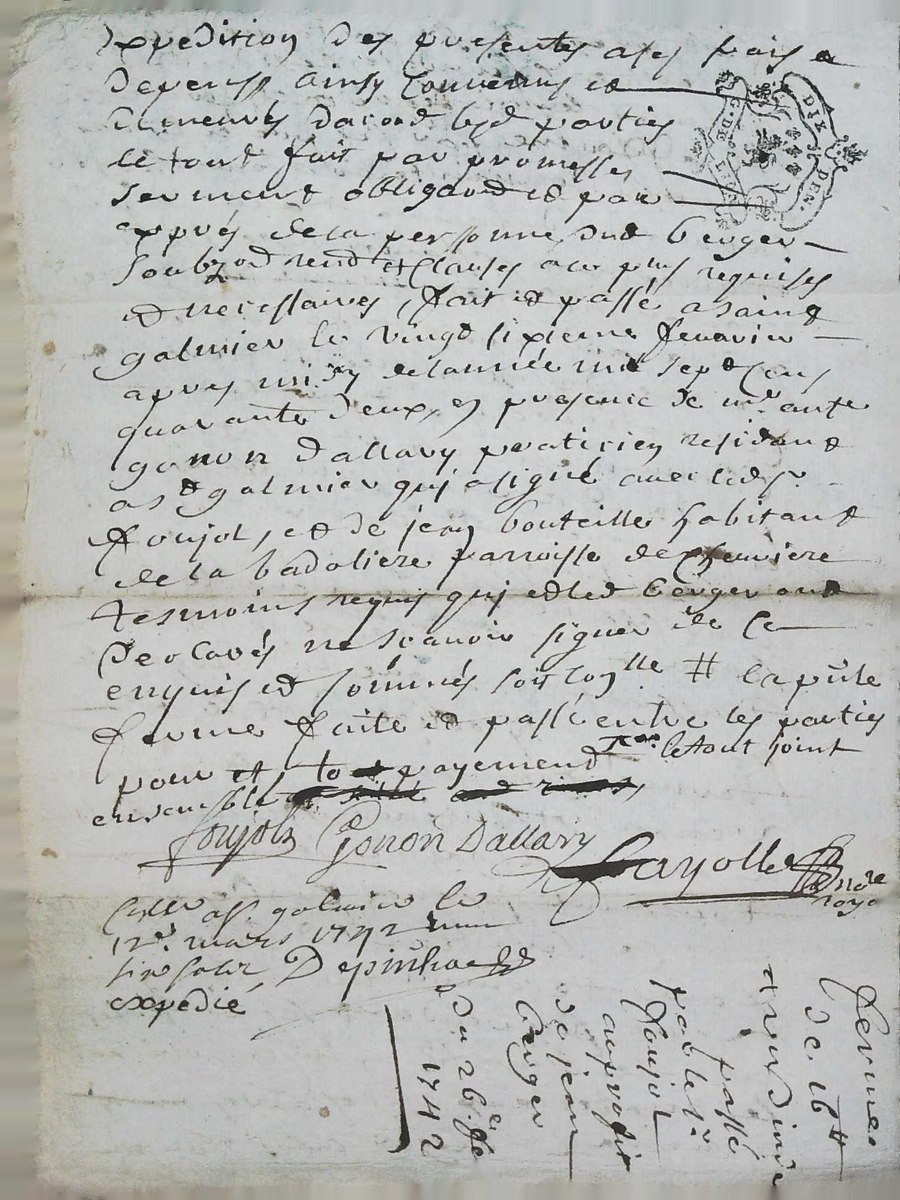 Expedition des presentes a ses frais &
depenses ainsy convenus et
demeurés dacord lesd parties
le tout fait par promesse
serment obligaōns et par
exprés de la personne dud berger
soubz et rend et clauses a ce plus requises
et necessaires, fait et passé a saint
galmier le vingt sixieme fevrier
apres midy de lannée mil sept cens
quarante deux, en presence de mr. ante
gonon Dallary praticien residant
a st galmier qui a signé avec led sr.
foujols, et de jean bouteille habitant
de la badoliere parroisse de
tesmoins requis qui et led berger ont
declarés ne scavoir signer de ce
enquis et sommés #  la pnte
ferme faite et passé entre les parties
pour et payement le tout joint
ensemble
foujols Gonon Dallary
fayolle nore
royal
a st. galmier le
12e. mars 1742
expedié
fermes
de 16 #
passé
par le sr
foujols
au profit
de jean
berger
du 26e. fe
1742
DIX DEN.
G. DE